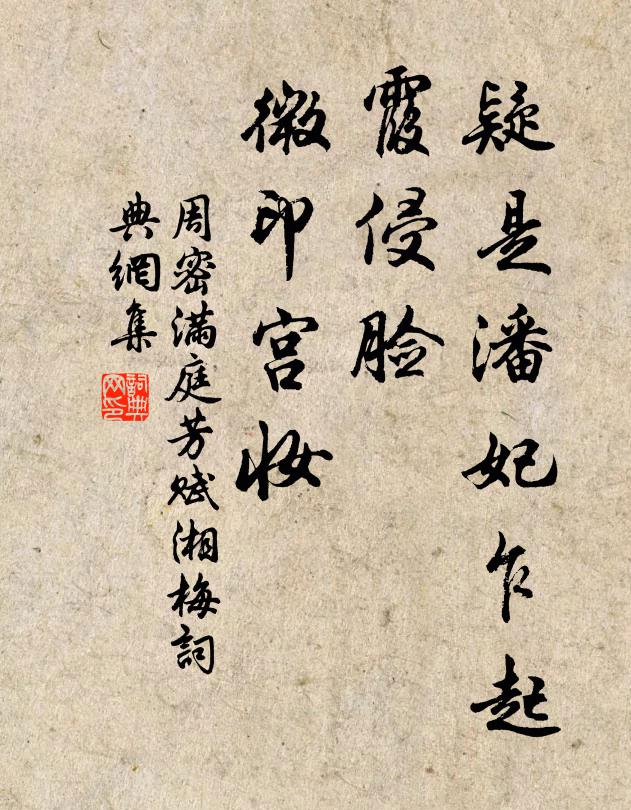 疑是潘妃乍起
霞侵脸
微印宫妆
周密满庭芳赋湘梅詞
典網集
詞典网印